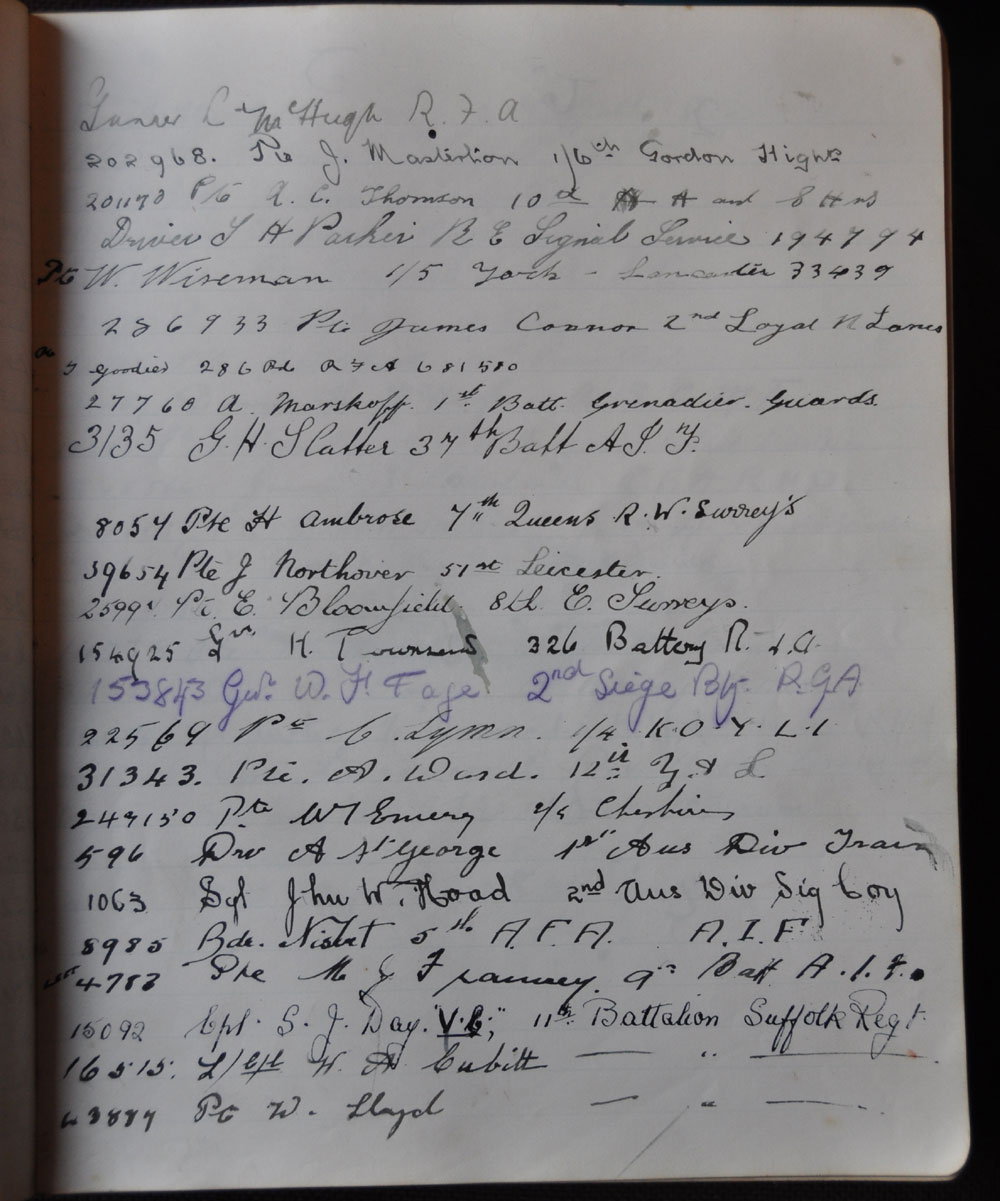 Gunner L McHugh R. F. A
202968. Pte J. Masterton 1/6th Gordon Highrs
Pte A. C. Thomson 10th A and S Hrs
Driver S H Parker R E Signal Service 194794
Pte W. Wiseman 1/5 York - Lancaster 33439
286933 Pte James Connor 2nd Loyal N Lancs
J Goodier 286 Bd R F A 681580
27760 A. Marskoff. 1st Batt. Grenadier. Guards.
3135 G. H. Slatter 37th Batt A. I. F.
8054 Pte H Ambrose 7th Queens R. W. Surrey's
39654 Pte J Northover 51st Leicester.
Pte E. Bloomfield. 8th E. Surreys.
154925 Gnr. H. Townsend 326 Battery R. F. A.
153843 Gnr. W. H. Page 2nd Siege Bty. R.G.A
22569 Pte C. Lymn. 1/4 K.O.Y.L.I
31343. Pte. A. Ward. 12th Y. & L.
Pte W Emery Cheshires
596 Drv A St George 1st Aus Div Train
1063 Sgt Jhn W. Hoad 2nd Aus Div Sig Coy
8985 Bdr. Nisbet 5th A.F.A. A.I.F
4783 Pte M 9th Batt A.I.F.
15092 Cpl. S. J. Day. "V.C;" 11th Battalion Suffolk Regt.
16515. L/Cpl H. A Cubitt — " —
63887 Pte W. Lloyd — " —